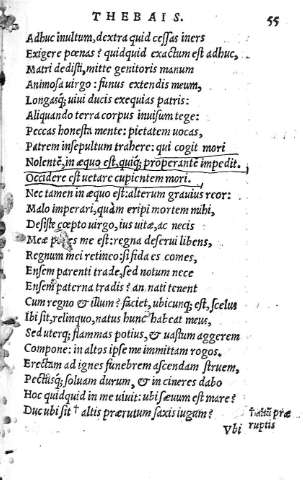 THEBAIS. 55
Adhuc inultum, dextra quid cessas iners
Exigere poenas? quidquid exactum est adhuc,
Matri dedisti, mitte genitoris manum
Animosa uirgo: funus extendis meum,
Longasq; uiui ducis exequias patris:
Aliquando terra corpus inuisum tege:
Peccas honesta mente: pietatem uocas,
Patrem insepultum trahere: qui cogit mori
Nolentē, in æquo est, quiq; properantē impedit.
Occidere est uetare cupientem mori.
Nec tamen in æquo est: alterum grauius reor:
Malo imperari, quàm eripi mortem mihi,
Desiste coepto uirgo, ius uitæ, ac necis
Meæ penes me est: regna deserui libens,
Regnum mei retineo: si fida es comes,
Ensem parenti trade, sed notum nece
Ensem paterna tradis? an nati tenent
Cum regno & illum? faciet, ubicunq; est, scelus
Ibi sit, relinquo, natus hunc habeat meus,
Sed uterq; flammas potius, & uastum aggerem
Compone: in altos ipse me immittam rogos.
Erectam ad ignes funebrem ascendam struem,
Pectusq; soluam durum, & in cineres dabo
Hoc quidquid in me uiuit: ubi sæuum est mare?
Duc ubi sit † altis prærutum saxis iugum?
† altū præ
ruptis
Vbi